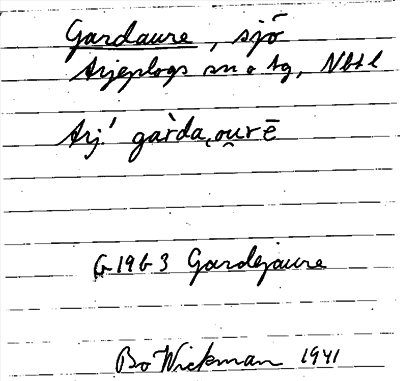 Gardaure, sjö
Arjeplogs sn o tg, Nbtl
Arj. gàrda͕ou̯rē
G1963 Gardejaure
Bo Wickman 1941